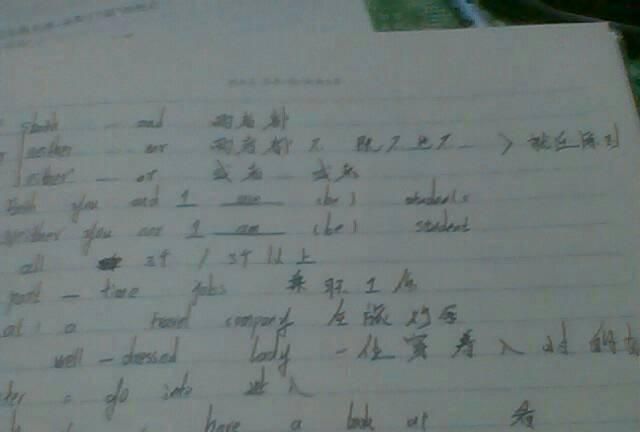 both — and 两者都
neither — nor 两者都不 既不也不 > 就近原则
either — or 或者 或者
Both you and I are (be) students
Neither you nor I am (be) student
all 3个 / 3个以上
part - time jobs 兼职工作
a travel company
well - dressed lady 一位穿着入时的女
= go into 进入
have a look at 看